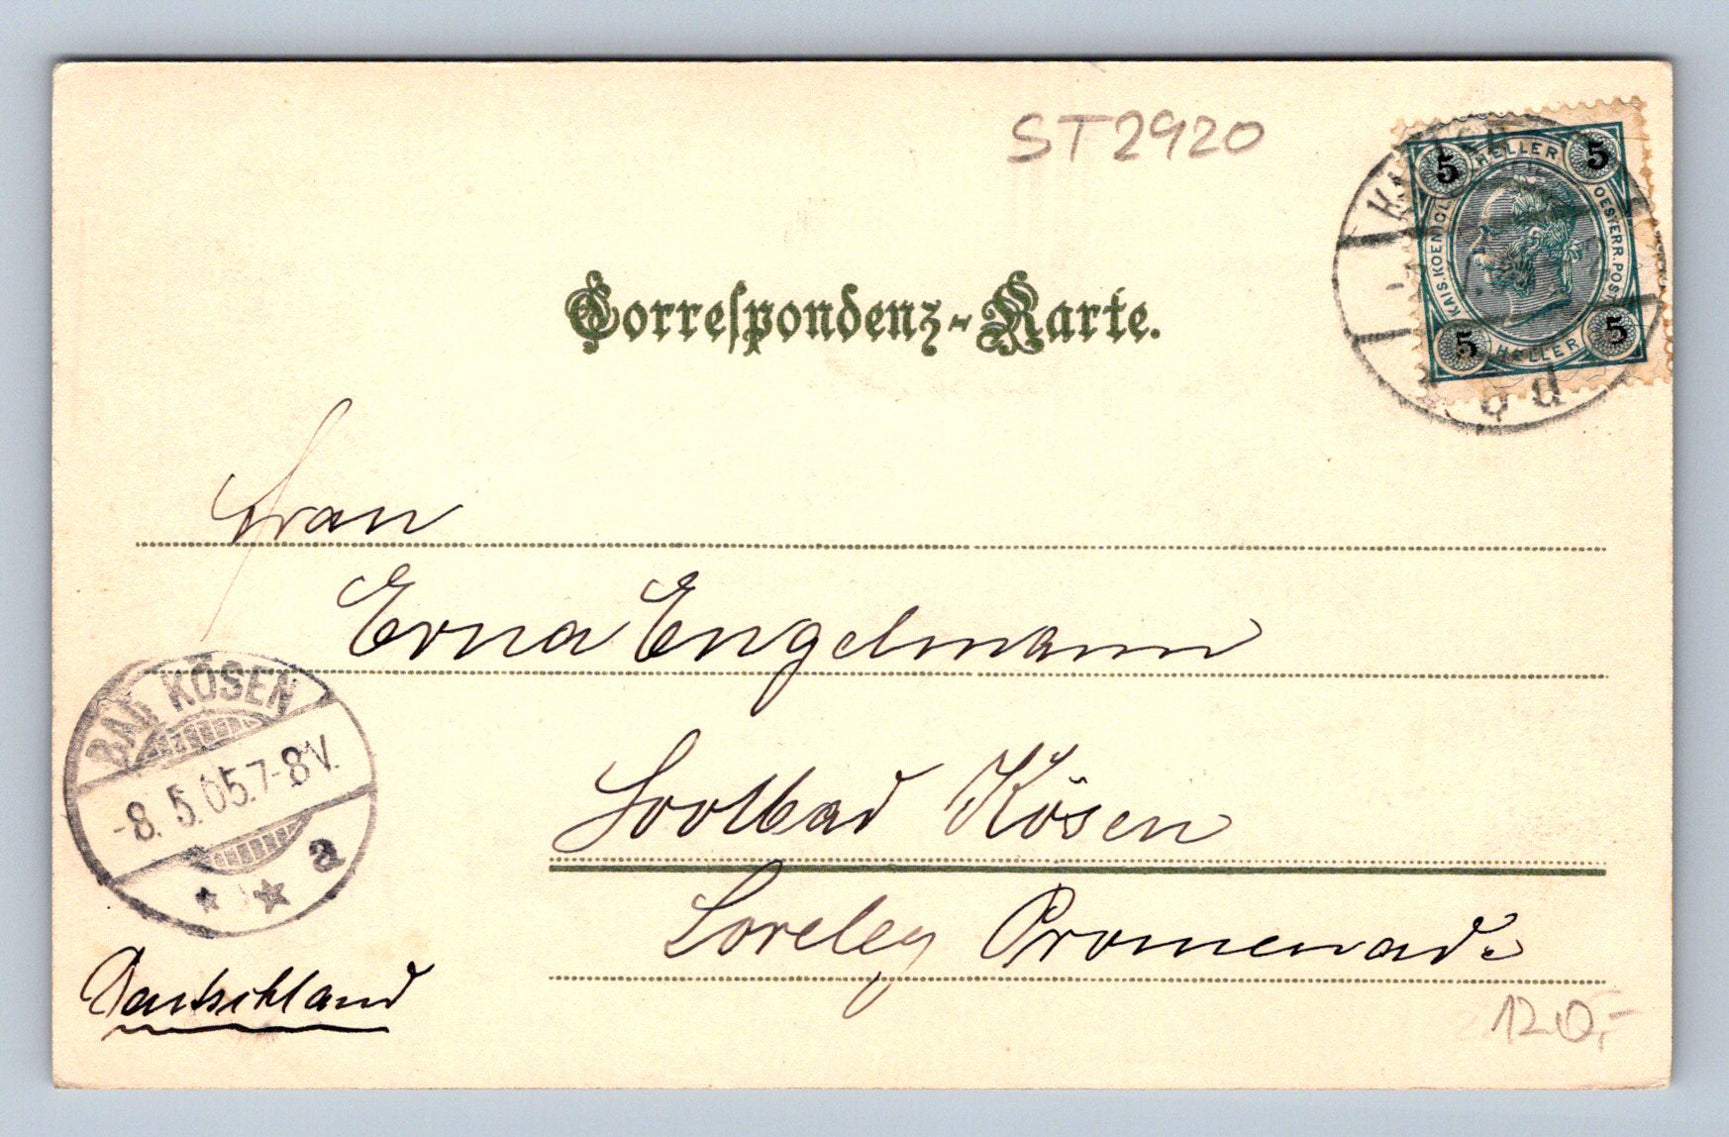 ST2920
5 HELLER 5
KAIS. KOENIGL. OESTERR. POST
5 HELLER 5
Correspondenz-Karte.
Frau
Erna Engelmann
BAD KÖSEN
-8. 5. 05. 7-8 V.
a
Soolbad Kösen
Loreley Promenade
Deutschland
120,-